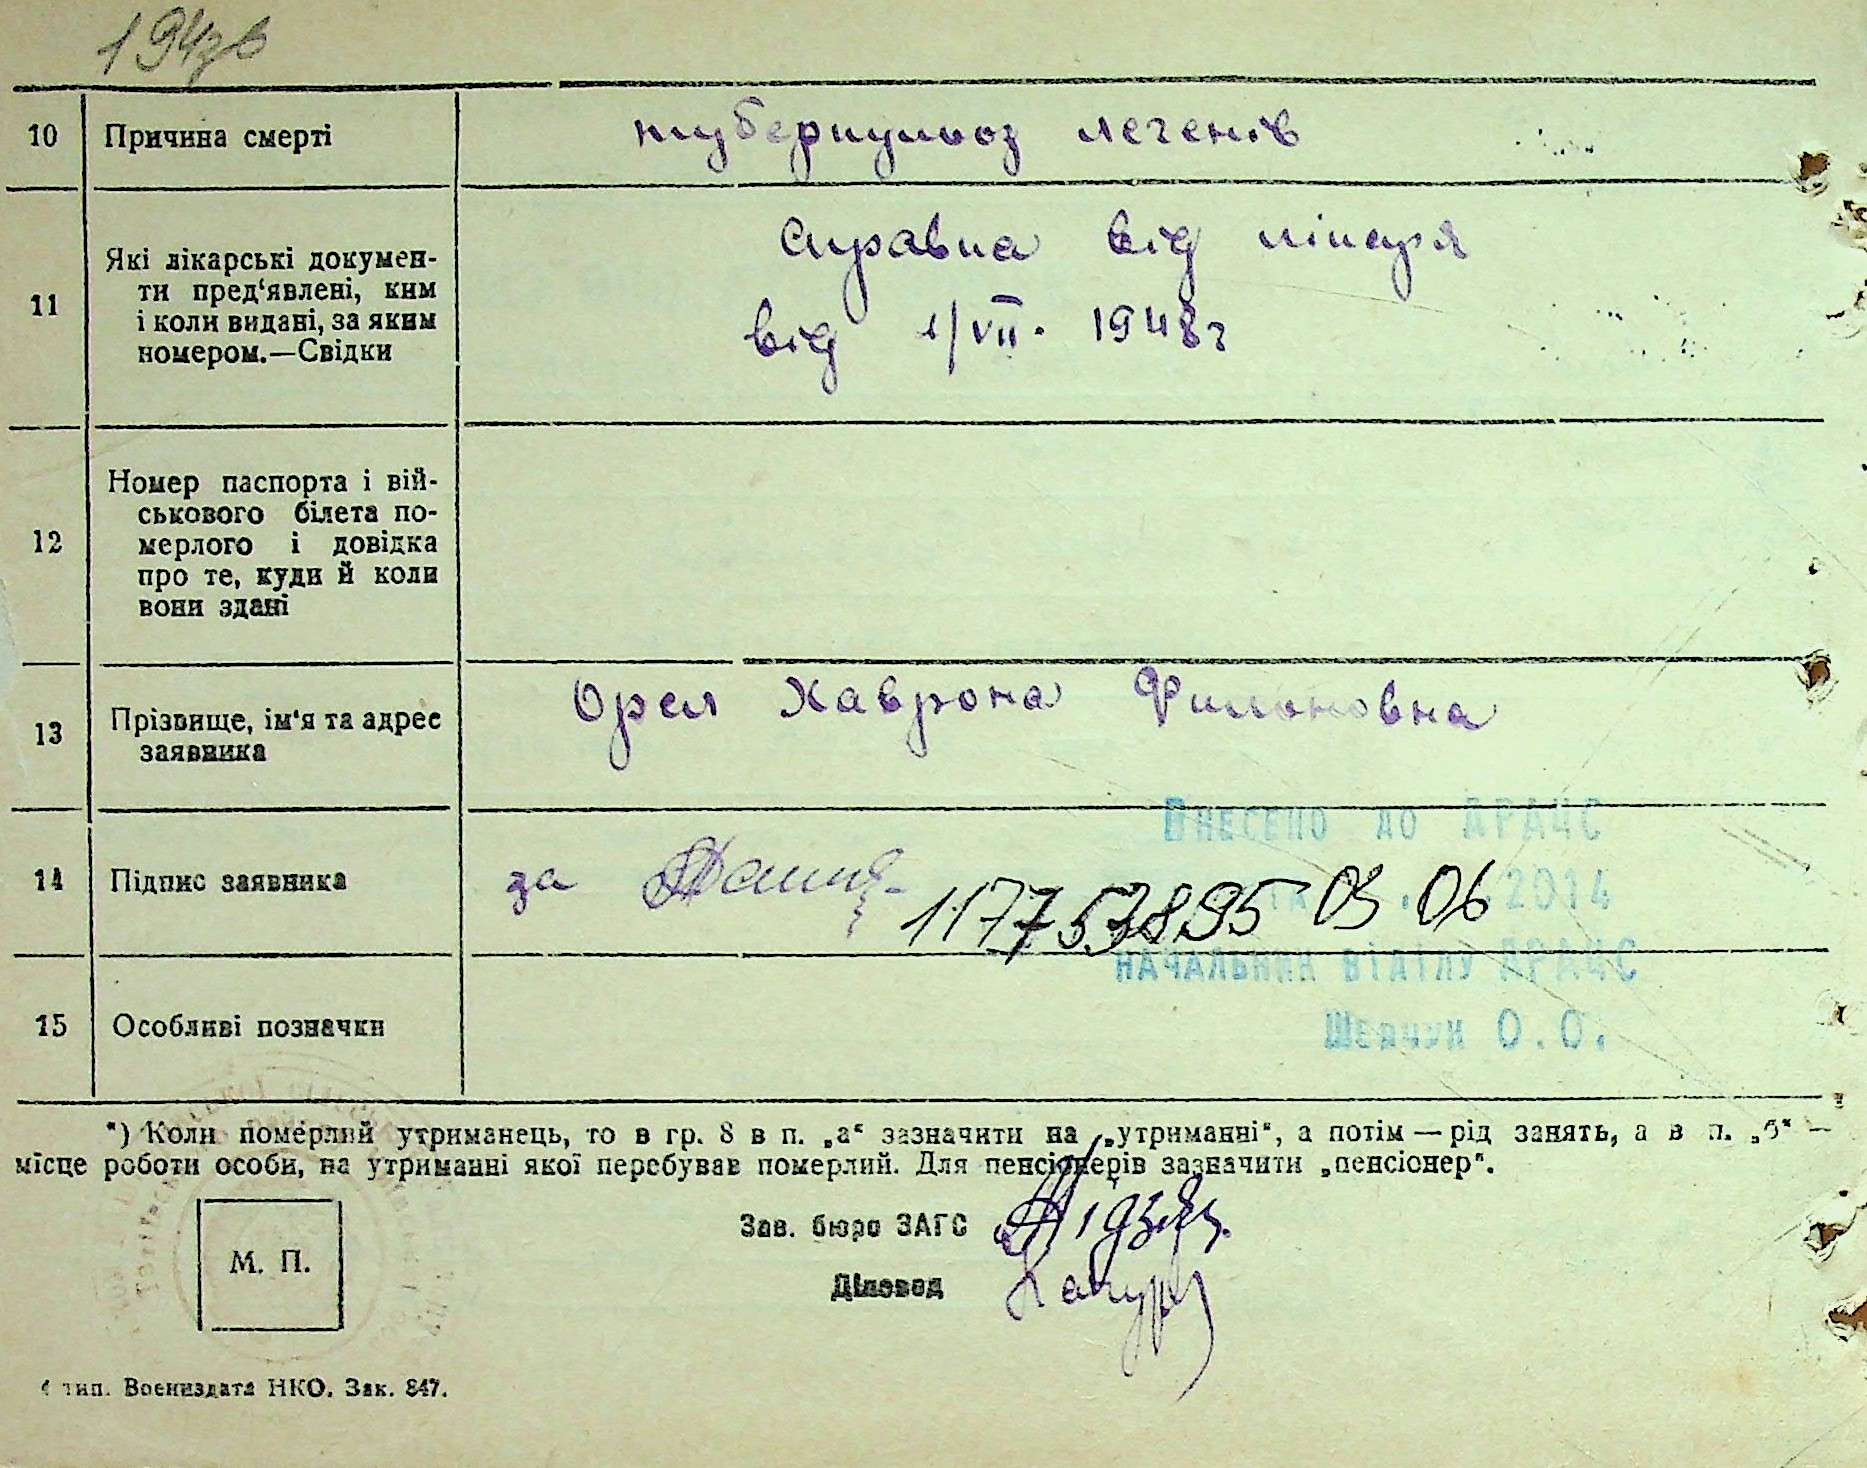 194зв
10 Причина смерті туберкульоз легенів
11 Які лікарські докумен-
ти пред‘явлені, ким
і коли видані, за яким
номером.—Свідки
справка від лікаря
від 1/VII. 1948г
12 Номер паспорта і вій-
ськового білета по-
мерлого і довідка
про те, куди й коли
вони здані
13 Прізвище, ім‘я та адрес
заявника
Орел Хаврона Филоновна
Внесено до ДРАЦС
14 Підпис заявника за
117753895 03 06
2014
начальник відділу ДРАЦС
15 Особливі позначки
Шевчук О.О.
*) Коли померлий утриманець, то в гр. 8 в п. „а“ зазначити на „утриманні“, а потім — рід занять, а в п. „б“ —
місце роботи особи, на утриманні якої перебував померлий. Для пенсіонерів зазначити „пенсіонер“.
Зав. бюро ЗАГС
М. П.
Діловод
4 тип. Воениздата НКО. Зак. 847.